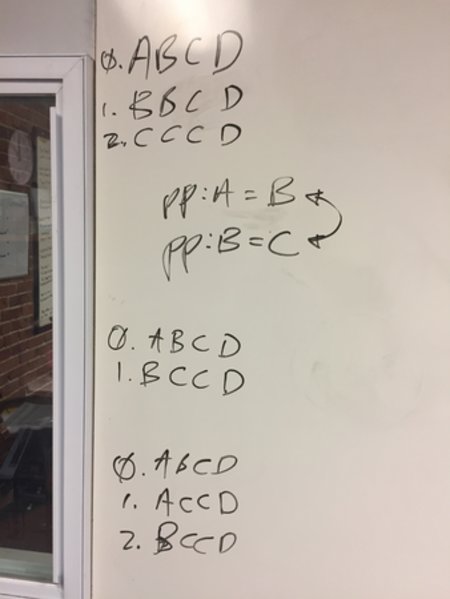 0. ABCD
1. BBCD
2. CCCD
pp:A=B
pp:B=C
0. ABCD
1. BCCD
0. ABCD
1. ACCD
2. BCCD